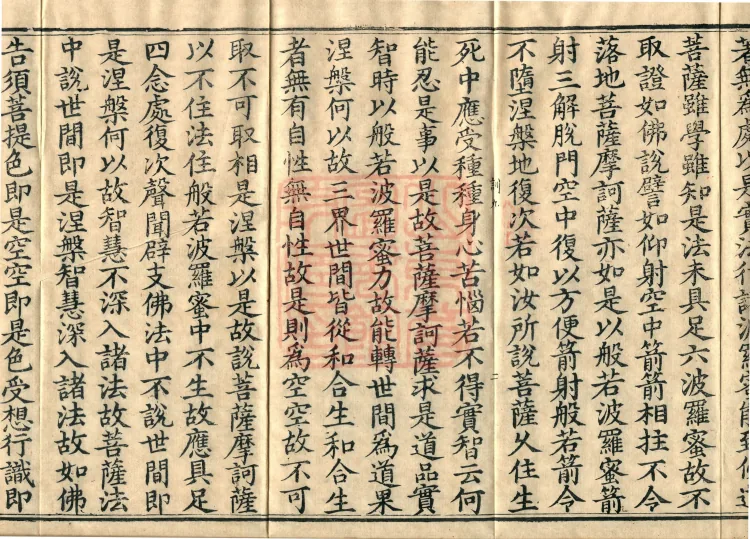 菩薩雖學雖知是法未具足六波羅蜜故不
取證如佛說譬如仰射空中箭箭相拄不令
落地菩薩摩訶薩亦如是以般若波羅蜜箭
射三解脫門空中復以方便箭射般若箭令
不墮涅槃地復次若如汝所說菩薩久住生
訓九 二
死中應受種種身心苦惱若不得實智云何
能忍是事以是故菩薩摩訶薩求是道品實
智時以般若波羅蜜力故能轉世間爲道果
涅槃何以故三界世間皆從和合生和合生
者無有自性無自性故是則爲空空故不可
取不可取相是涅槃以是故說菩薩摩訶薩
以不住法住般若波羅蜜中不生故應具足
四念處復次聲聞辟支佛法中不說世間即
是涅槃何以故智慧不深入諸法故菩薩法
中說世間即是涅槃智慧深入諸法故如佛
告須菩提色即是空空即是色受想行識即